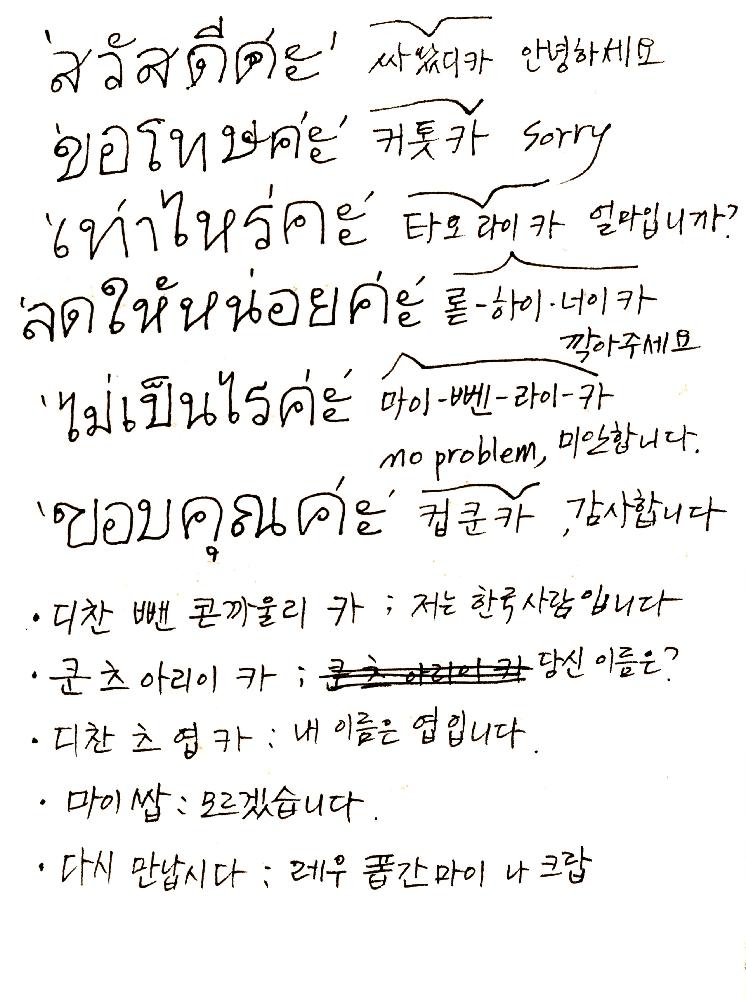 'สวัสดีค่ะ' 싸왔디카 안녕하세요
'ขอโทษค่ะ' 커톳카 sorry
'เท่าไหร่คะ' 타오라이카 얼마입니까?
'ลดให้หน่อยค่ะ' 롣-하이·너이카
깍아주세요
'ไม่เป็นไรค่ะ' 마이-뻰-라이-카
no problem, 미안합니다.
'ขอบคุณค่ะ' 컵쿤카 , 감사합니다
· 디찬 뻰 콘까울리 카 ; 저는 한국사람입니다
· 쿤 츠 아리이 카 ; 쿤 츠 아리이 카 당신 이름은?
· 디찬 츠 엽 카 : 내 이름은 엽입니다.
· 마이쌉 : 모르겠습니다.
· 다시 만납시다 ; 레우 퐁간마이 나 크랍